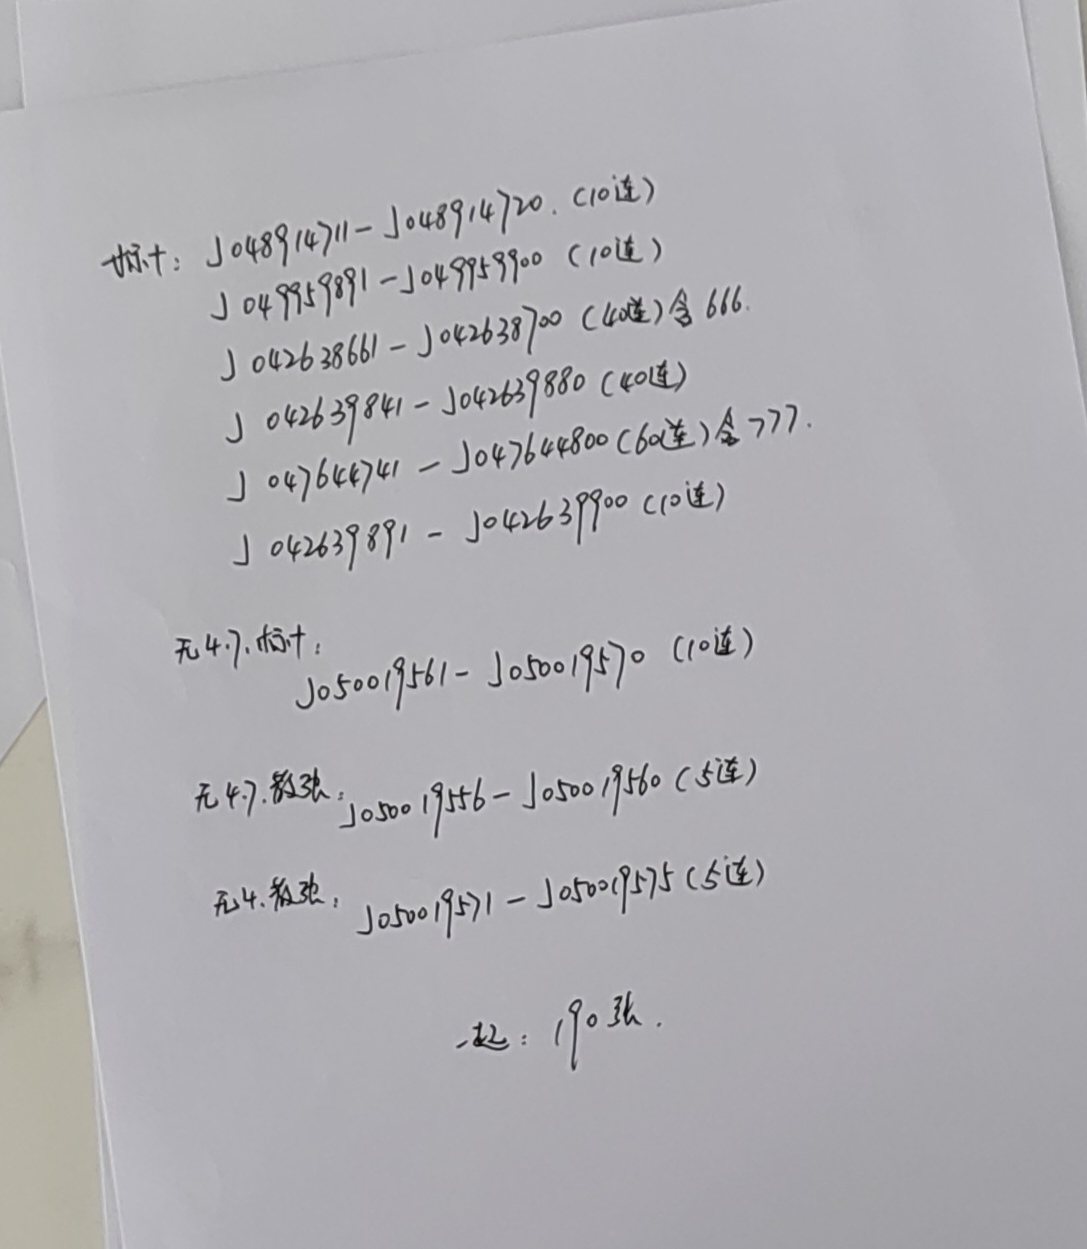 标十：J048914711-J048914720.（10连）
J049959891-J049959900（10连）
J042638661-J042638700（40连）含666.
J042639841-J042639880（40连）
J047644741-J047644800（60连）含777.
J042639891-J042639900（10连）
无4.7.标十：
J050019561-J050019570（10连）
无4.7.散张：J050019556-J050019560（5连）
无4.散张：J050019571-J050019575（5连）
一起：190张.